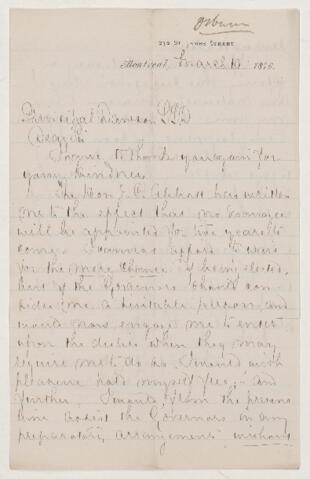 Osborn
272 St. James Street
Montreal, March 10 1876
Principal Dawson LLD
Dear Sir
Allow me to thank you again for
your kindness.
The Hon J. C. has written
me to the effect that no examiner
will be appointed for two years to
come. I cannot afford to wait
for the mere chance of being elected,
but if the Governors should con
sider me a suitable person and
would now engage me to enter
upon the duties when they may
require me to do so, I would with
pleasure hold myself free; and
further, I would from the present
time assist the Governors in any
preparatory arrangements without